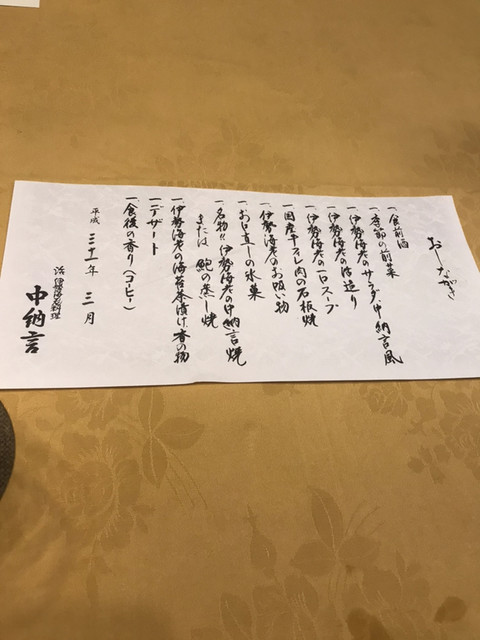 おしながき
一、食前酒
一、季節の前菜
一、伊勢海老のサラダ、中納言風
一、伊勢海老の活造り
一、伊勢海老の一口スープ
一、国産牛ヒレ肉の石板焼
一、伊勢海老のお吸い物
一、お口直しの氷菓
一、名物!!伊勢海老の中納言焼
または 鮑の蒸し焼
一、伊勢海老の海苔茶漬け、香の物
一、デザート
一、食後の香り(コーヒー)
平成 三十一年 三月
活伊勢海老料理
中納言